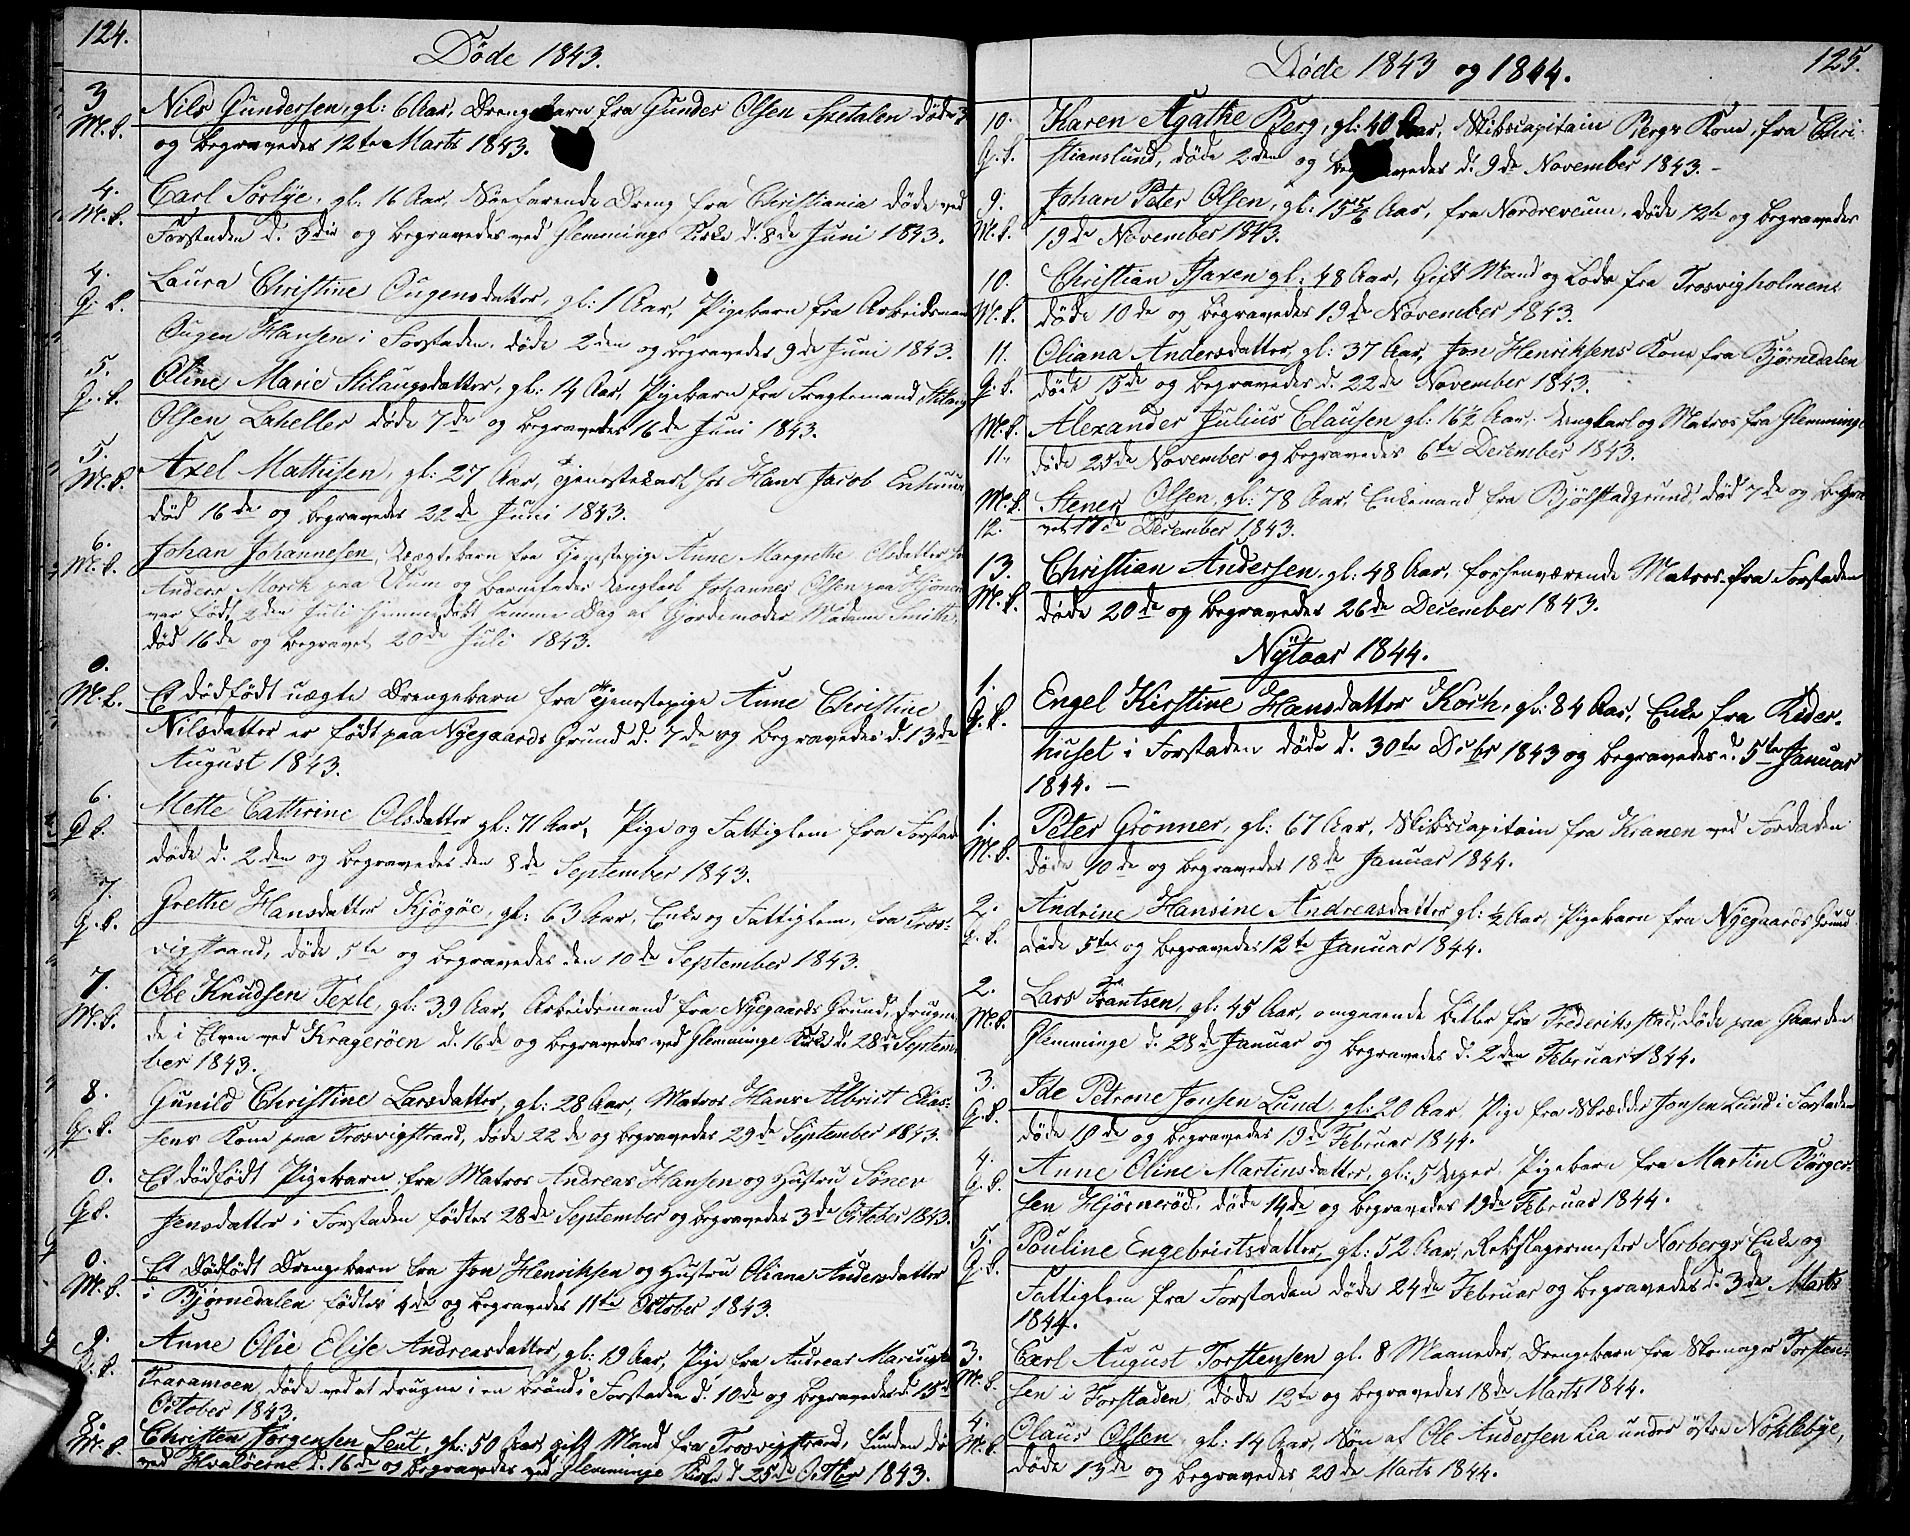 124.
Døde 1843.
3
M.k.
Nils Gundersen, gl: 6 Aar, Drengebarn fra Gunder Olsen Spetalen døde 3
og begravedes 12te Marts 1843.
4.
M.k.
Carl Sørlye, gl: 16 Aar, Søefarende Dreng fra Christiania døde ved
Forstaden d. 3die og begravedes ved Glemminge Kirke d. 8de Juni 1843.
4.
Q.k.
Laura Christine Ougensdatter, gl: 1 Aar, Pigebarn fra Arbeidsmand
Ougen Hansen i Forstaden, døde 2den og begravedes 9de Juni 1843.
5.
Q.k.
Oline Marie Stilaugsdatter, gl: 14 Aar, Pigebarn fra Fragtemand Stilaug
Olsen Lahelle døde 7de og begravedes 16de Juni 1843.
5.
M.k.
Axel Mathisen, gl: 27 Aar, Tjenestekarl hos Hans Jacob
død 16de og begravedes 22de Juni 1843.
6.
M.k.
Johan Johannesen, Uægtebarn fra Tjenestepige Anne Margrethe Olsdatter hos
Anders Morch paa og Barnefader Ungkarl Johannes Olsen paa
var født 2den Julii hjemmedøbt samme Dag af Gjordemoder Madame Smith,
død 16de og begravet 20de Juli 1843.
0.
M.k.
Et dødfødt uægte Drengebarn fra Tjenestepige Anne Christine
Nilsdatter er født paa Nyegaards Grund d. 7de og begravedes d. 13de
August 1843.
6.
Q.k.
Mette Cathrine Olsdatter gl: 71 Aar, Pige og Fattiglem fra Forstaden
døde d. 2den og begravedes den 8de September 1843.
7.
Q.k.
Grethe Hansdatter Kjøgøe, gl: 63 Aar, Enke og Fattiglem, fra Tros-
vigstrand, døde 5te og begravedes den 10de September 1843.
7.
M.k.
Ole Knudsen Texle, gl: 39 Aar, Arbeidsmand fra Nyegaards Grund, drugne-
de i Elven ved Kragerøen d. 16de og begravedes ved Glemminge Kirke d. 28de Septem-
ber 1843.
8.
Q.k.
Gunild Christine Larsdatter, gl: 28 Aar, Matros Hans Albrict Elias-
sens Kone paa Trosvigstrand, døde 22de og begravedes 29de September 1843.
0.
Q.k.
Et dødfødt Pigebarn fra Matros Andreas Hansen og Hustru
Jensdatter i Forstaden fødtes 28de September og begravedes 3de October 1843.
0.
M.k.
Et Dødfødt Drengebarn fra Jon Henriksen og Hustru Oliana Andersdatter
i Bjørnedalen fødtes 4de og begravedes 11te October 1843.
9.
Q.k.
Anne Olie Elise Andreasdatter, gl: 19 Aar, Pige fra Andreas
Traramoen, døde ved at drugne i en brønd i Forstaden d. 10de og begravedes d. 15de
October 1843.
8.
M.k.
Christen Jørgensen Leut, gl: 50 Aar gift Mand fra Trosvigstrand, funden død
ved Hvalverne d. 16de og begravedes ved Glemminge Kirke d. 25de Octbr 1843.
Døde 1843 og 1844.
125.
10.
Q.k.
Karen Agathe Berg, gl: 40 Aar, Skibscapitain Bergs Kone, fra Chri-
stianslund, døde 2den og begravedes d. 9de November 1843.-
9.
M.k.
Johan Peter Olsen, gl: 15 Aar, fra Nordreveum, døde 12te og begravedes
19de November 1843.
10.
M.k.
Christian Haxen gl: 48 Aar, Gift Mand og Lods fra Trosvigholmene
døde 10de og begravedes 19de November 1843.
11.
Q.k.
Oliana Andersdatter, gl: 37 Aar, Jon Henriksens Kone fra Bjørnedalen
døde 15de og begravedes d. 22de November 1843.
M.k.
11.
Alexander Julius Clausen gl: 16½ Aar, Ungkarl og Matros fra Glemminge
døde 25de November og begravedes 6te December 1843.
M.k.
12.
Stener Olsen, gl: 78 Aar, Enkemand fra Bjølstadgrund, død 7de og begra-
vet 17de December 1843.
13.
M.k.
Christian Andersen, gl: 48 Aar, forhenværende Matros fra Forstaden
døde 20de og begravedes 26de December 1843.
Nytaar 1844.
1.
Q.k.
Engel Kirstine Hansdatter Koch, gl: 84 Aar, Enke fra Reder-
huset i Forstaden døde d. 30te Decbr 1843 og begravedes d. 5te Januar
1844. —
1.
M.k.
Peter Grønner, gl: 67 Aar, Skibscapitain fra Kranen ved Forstaden
døde 10de og begravedes 18de Januar 1844.
2.
Q.k.
Andrine Hansine Andreasdatter gl: ½ Aar, Pigebarn fra Nyegaards Grund
døde 5te og begravedes 12te Januar 1844.
2.
M.k.
Lars Frantsen, gl: 45 Aar, omgaaende Betler fra Frederiksstad, døde paa Gaarden
Glemminge d. 28de Januar og begravedes d. 2den Februar 1844.
3.
Q.k.
Ide Petrone Jonsen Lund, gl: 20 Aar, Pige fra Skrædder Jonsen Lund i Forstaden
døde 10de og begravedes 19de Februar 1844.
4.
Q.k.
Anne Oline Martinsdatter, gl: 5 Uger, Pigebarn fra Martin Børger-
sen Hjørnerød, døde 14de og begravedes 19de Februar 1844.
5.
Q.k.
Pouline Engebrictsdatter, gl: 52 Aar, Rebslagermester Norbergs Enke og
Fattiglem fra Forstaden døde 24de Februar og begravedes d. 3de Marts
1844.
3.
M.k.
Carl August Torstensen gl. 8 Maaneder, Drengebarn fra Skomager Torsten-
sen i Forstaden, døde 12te og begravedes 18de Marts 1844.
4.
M.k.
Olaus Olsen, gl: 14 Aar, Søn af Ole Andersen Lia under østre Nøklebye,
døde 13de og begravedes 20de Marts 1844.